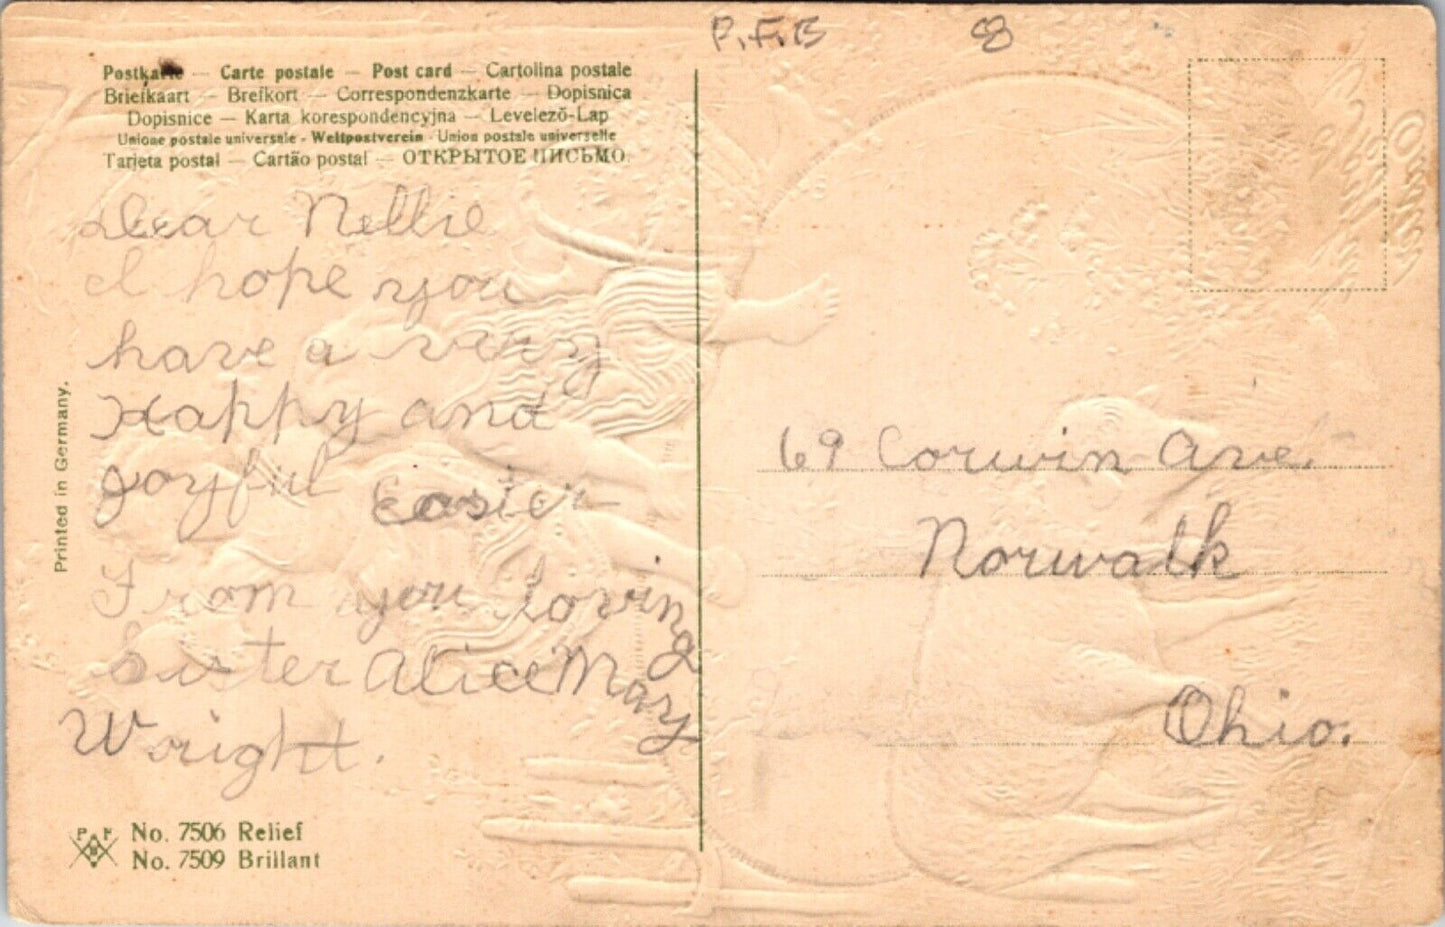 P.F.B 8
Postkarte — Carte postale — Post card — Cartolina postale
Briefkaart — Brefkort — Correspondenzkarte — Dopisnica
Dopisnice — Karta korespondencyjna — Levelező-Lap
Unione postale universale - Weltpostverein - Union postale universelle
Tarjeta postal — Cartão postal — ОТКРЫТОЕ ПИСЬМО.
Dear Nellie
I hope you
have a very
Happy and
joyful Easter
From you Loving
Sister Alice May
Wright.
Printed in Germany.
P F B
No. 7506 Relief
No. 7509 Brillant
69 Corwin Ave.
Norwalk
Ohio.